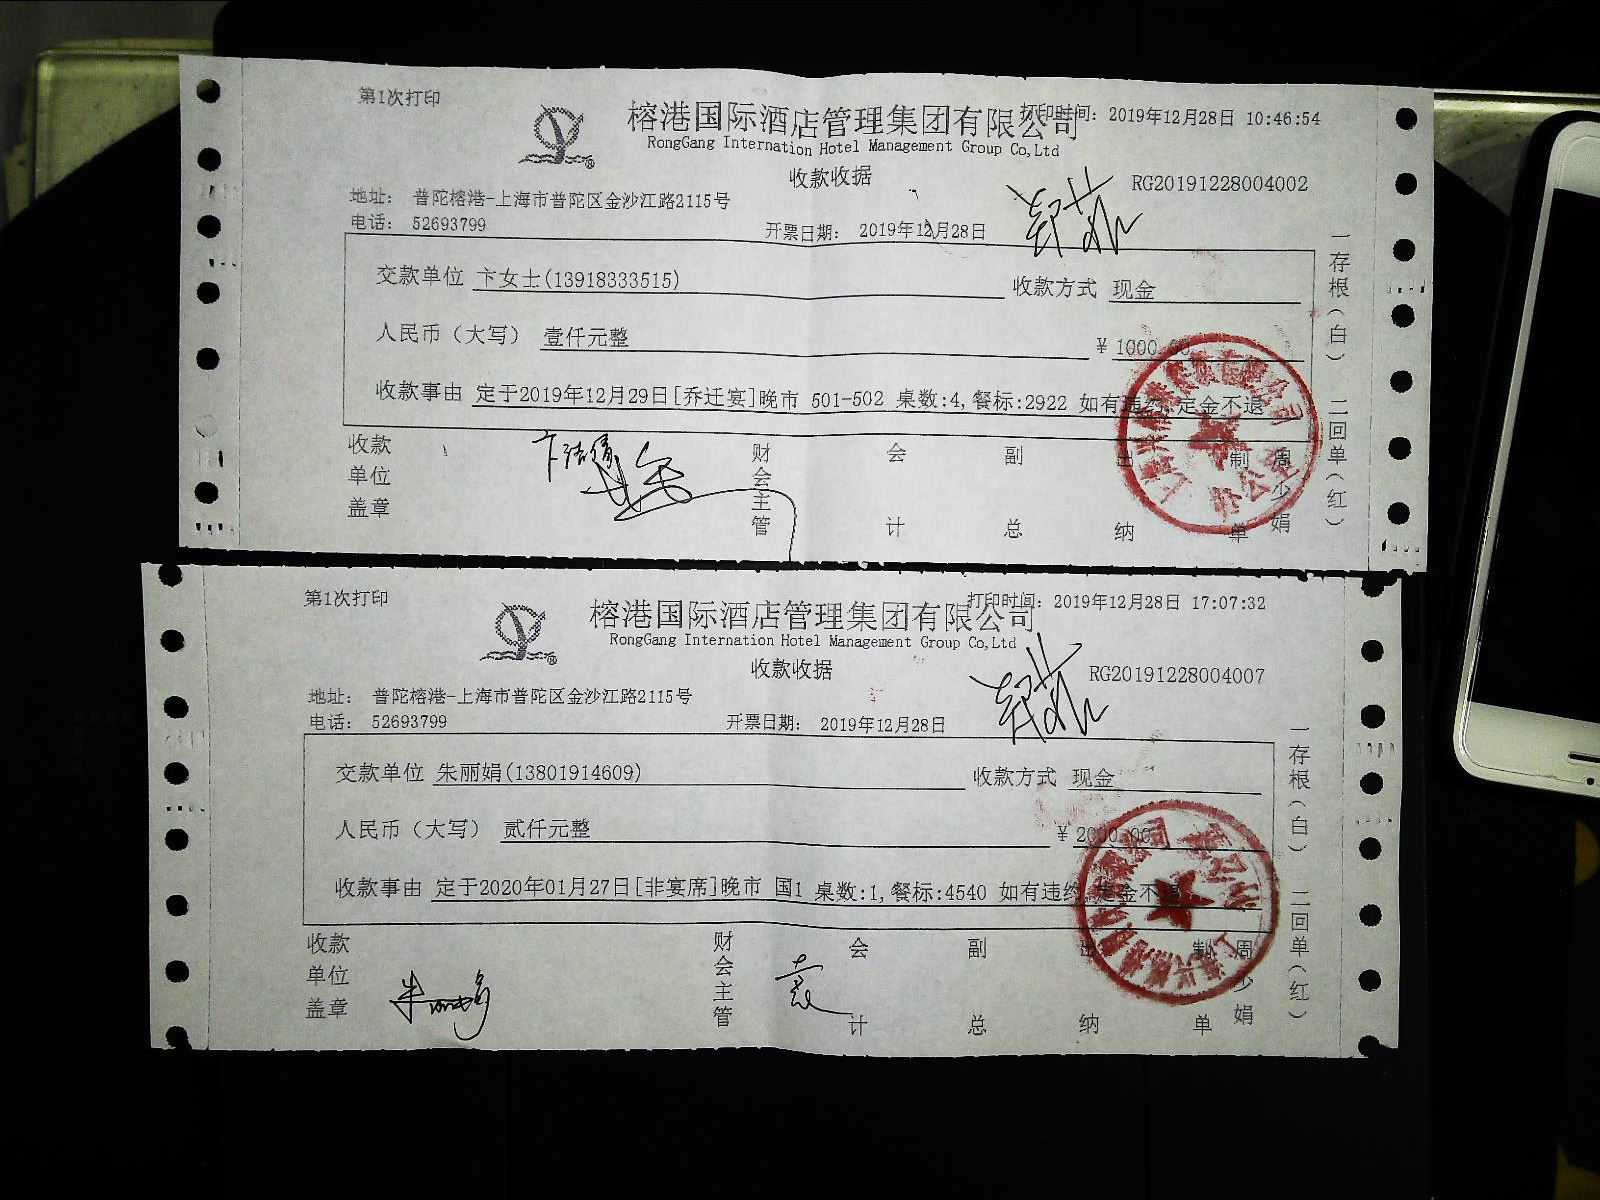 第1次打印
榕港国际酒店管理集团有限公司
打印时间: 2019年12月28日 10:46:54
RongGang Internation Hotel Management Group Co,Ltd
收款收据
RG20191228004002
地址: 普陀榕港-上海市普陀区金沙江路2115号
电话: 52693799
开票日期: 2019年12月28日
交款单位 卞女士(13918333515)
收款方式 现金
人民币（大写） 壹仟元整
¥ 1000.00
收款事由 定于2019年12月29日[乔迁宴]晚市 501-502 桌数:4,餐标:2922 如有违约,定金不退
收款单位盖章
财会主管
会计
副总
出纳
制单
周少娟
一存根(白) 二回单(红)
第1次打印
榕港国际酒店管理集团有限公司
打印时间: 2019年12月28日 17:07:32
RongGang Internation Hotel Management Group Co,Ltd
收款收据
RG20191228004007
地址: 普陀榕港-上海市普陀区金沙江路2115号
电话: 52693799
开票日期: 2019年12月28日
交款单位 朱丽娟(13801914609)
收款方式 现金
人民币（大写） 贰仟元整
¥ 2000.00
收款事由 定于2020年01月27日[非宴席]晚市 国1 桌数:1,餐标:4540 如有违约,定金不退
收款单位盖章
朱丽娟
财会主管
袁
会计
副总
出纳
制单
周少娟
一存根(白) 二回单(红)